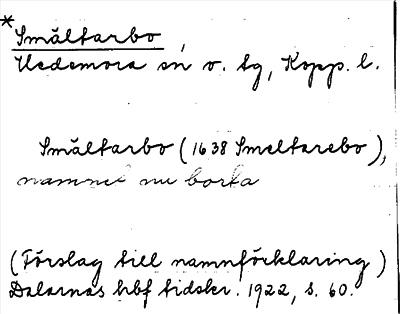 *Smältarbo,
Hedemora sn o. tg, Kopp. l.
Smältarbo (1638 Smeltarebo),
namnet nu borta
(Förslag till namnförklaring)
Dalarnas hbf tidskr. 1922, s. 60.